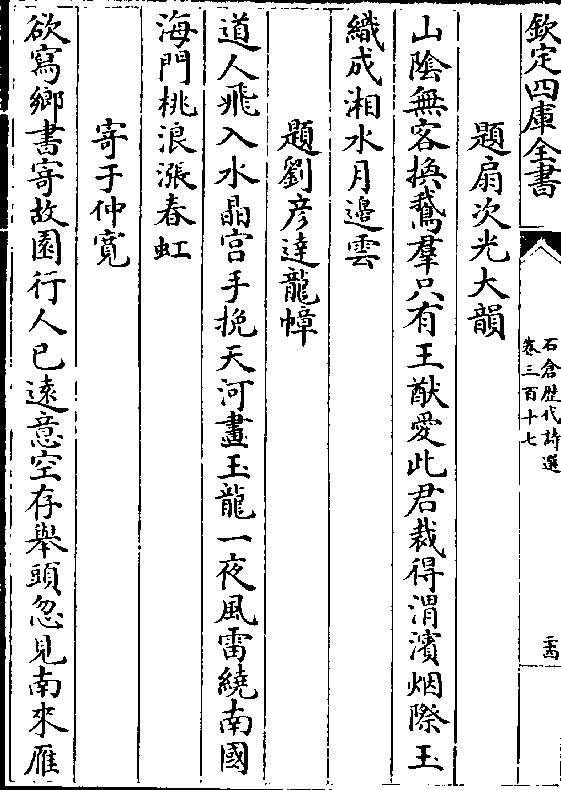 欽定四庫全書
石倉歷代詩選
卷三百十七
題扇次光大韻
山陰無客換鵞羣只有王猷愛此君裁得渭濱烟際玉
織成湘水月邉雲
題劉彦達龍幛
道人飛入水晶宫手挽天河畫玉龍一夜風雷繞南國
海門桃浪漲春虹
寄于仲寛
欲寫鄉書寄故園行人已遠意空存舉頭忽見南來雁